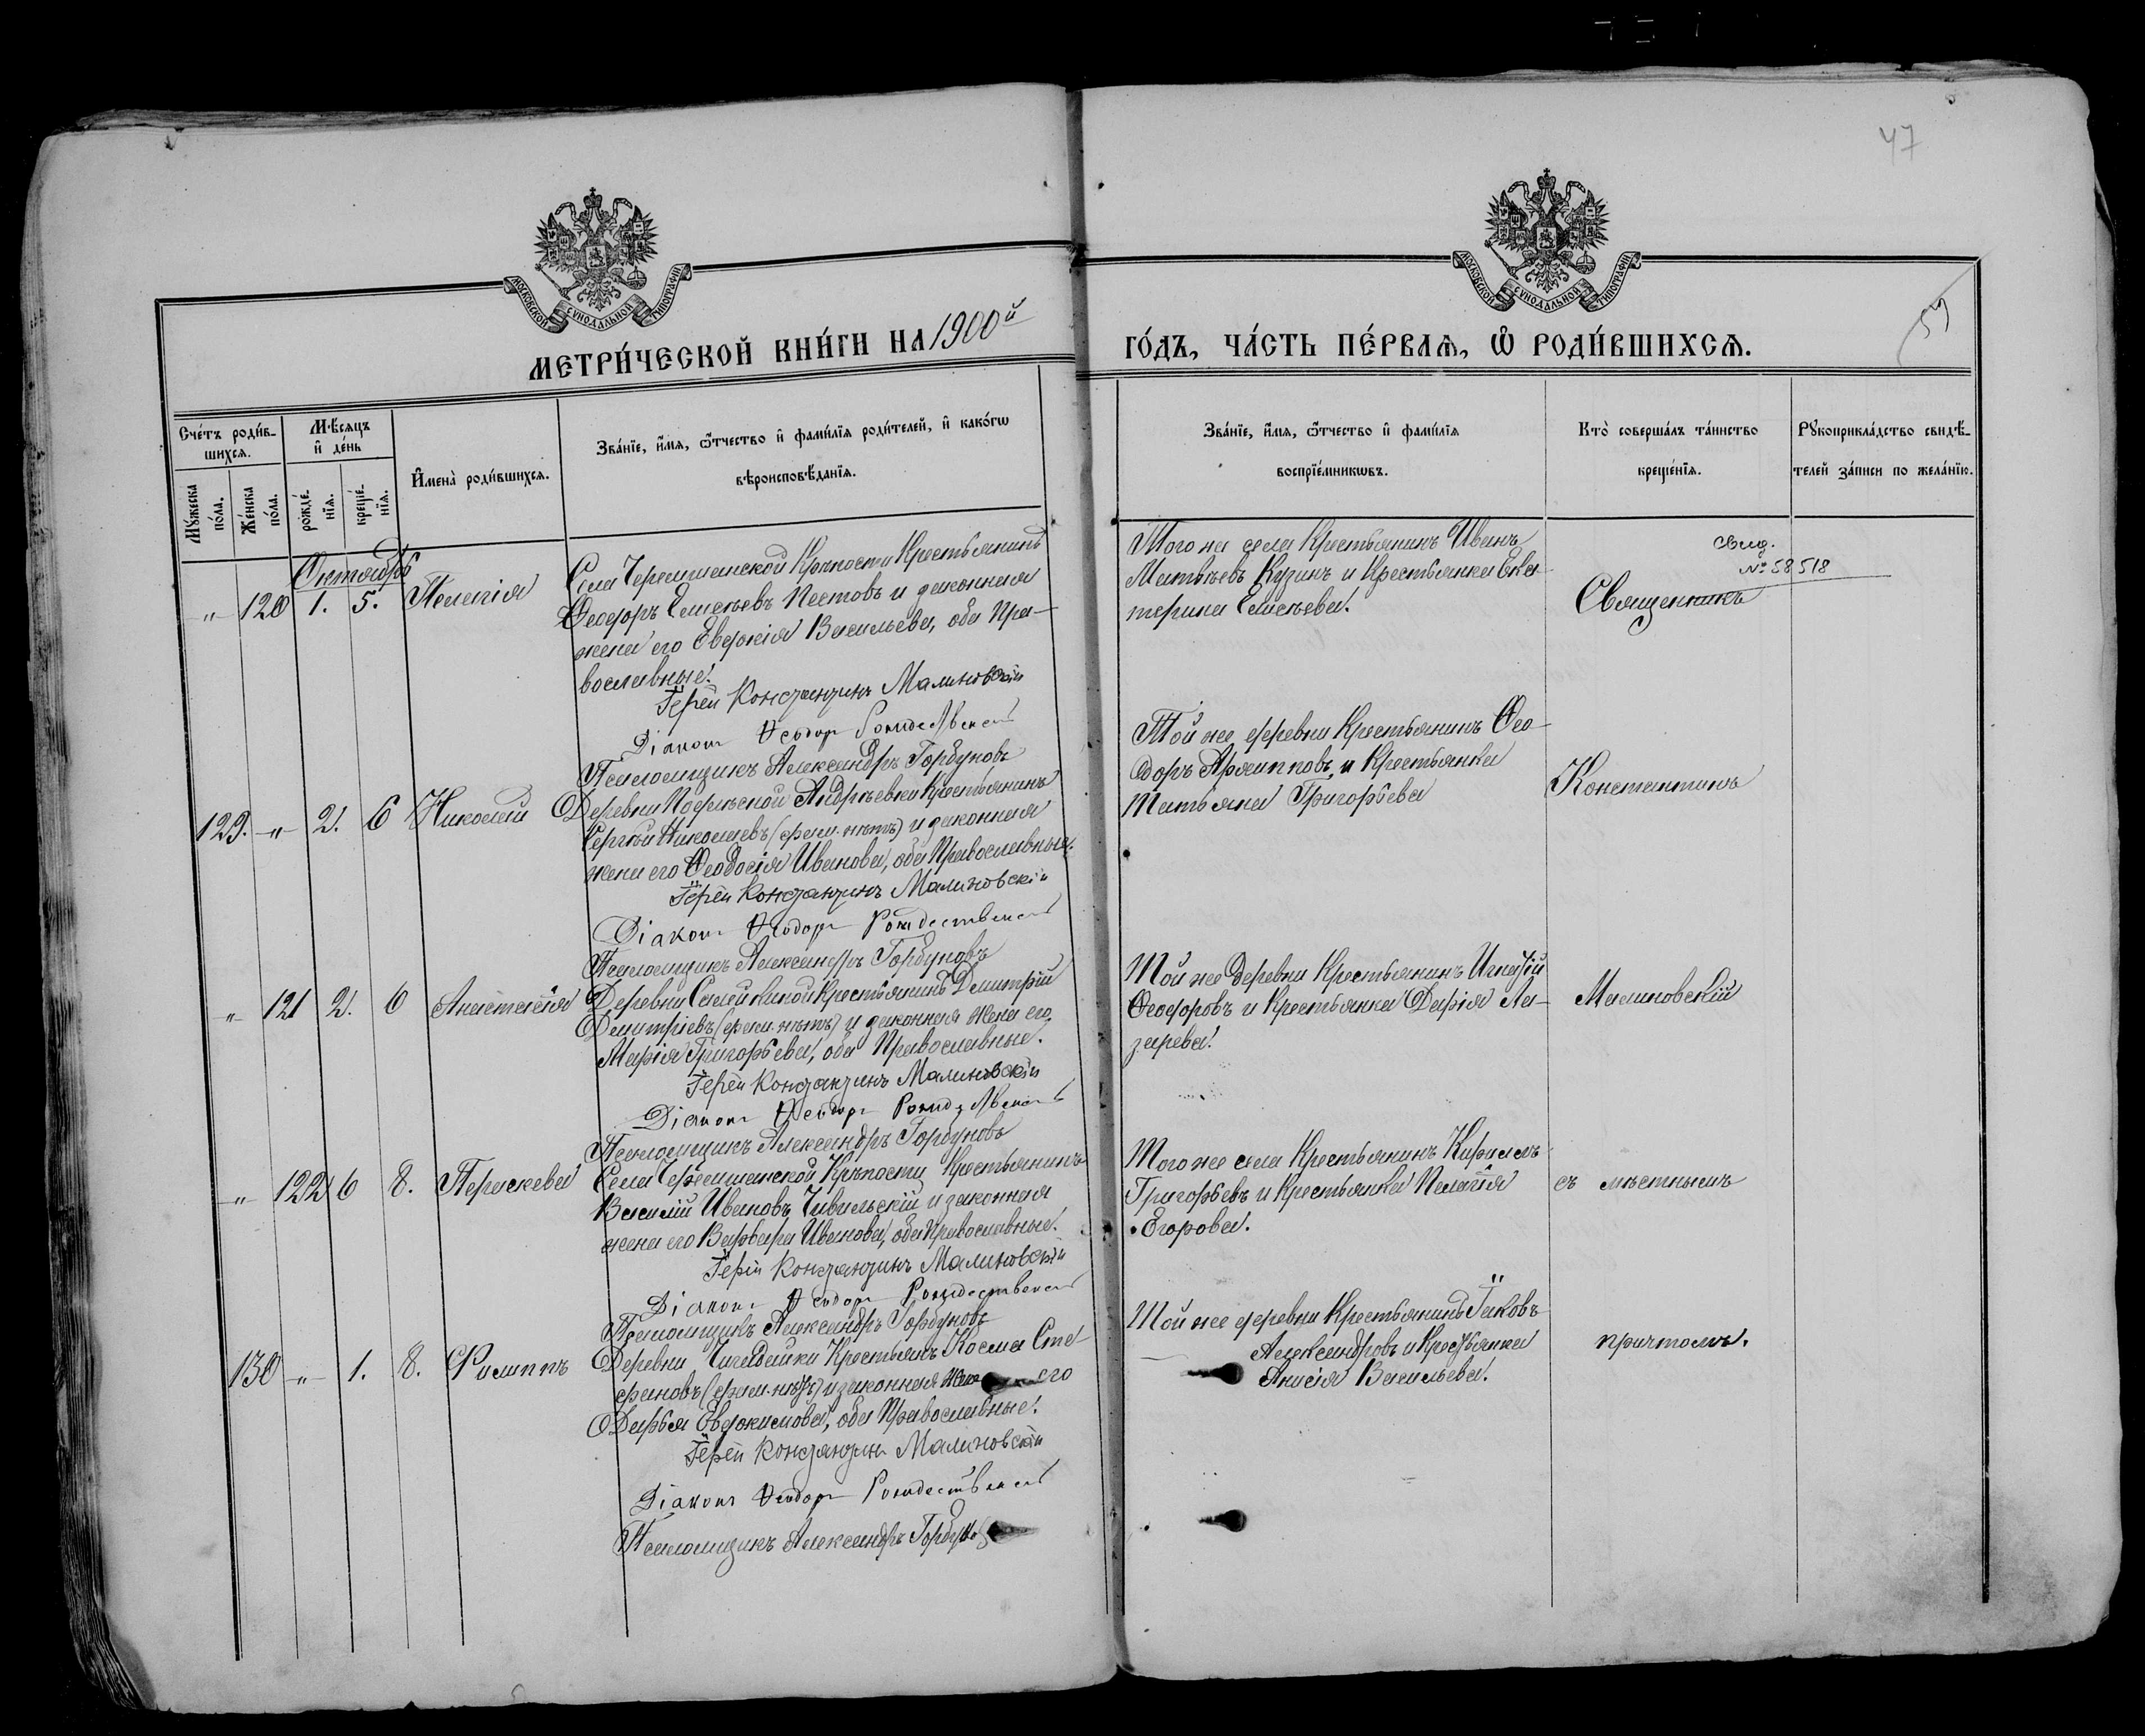 47
МОСКОВСКОЙ СѴНОДАЛЬНОЙ ТИПОГРАФІИ
МОСКОВСКОЙ СѴНОДАЛЬНОЙ ТИПОГРАФІИ
МЕТРИ́ЧЕСКОЙ КНИ́ГИ НА 1900й
ГО́ДЪ, ЧА́СТЬ ПЕ́РВАѦ, Ѡ РОДИ́ВШИХСѦ.
Сче́тъ роди́в-
шихсѧ.
Мѣ́сѧцъ
и҆ де́нь
Мꙋ́жеска
по́ла.
Же́нска
по́ла.
рожде́-
нїѧ.
креще́-
нїѧ.
И҆мена̀ роди́вшихсѧ.
Зва́нїе, и҆́мѧ, ѻ҆́тчество и҆ фами́лїѧ роди́телей, и҆ како́гѡ
вѣроисповѣ́данїѧ.
Зва́нїе, и҆́мѧ, ѻ҆́тчество и҆ фами́лїѧ
воспрїе́мникѡвъ.
Кто̀ соверша́лъ та́инство
креще́нїѧ.
Рꙋкоприкла́дство свидѣ́-
телей за́писи по жела́нїю.
Октябрь
„ 120 1. 5. Пелагія
Села Черемшанской Крѣпости Крестьянинъ
Ѳеодоръ Елисѣевъ Пестовъ и законная
жена его Евдокія Васильева, оба Пра-
вославные.
Іерей Константинъ Малиновскій
Діаконъ Ѳеодоръ Рождественскій
Псаломщикъ Александръ Горбуновъ
Того же села Крестьянинъ Иванъ
Матвѣевъ Кузинъ и Крестьянка Ека-
терина Елисѣева.
свид.
№ 58518
Священникъ
129. „ 2. 6 Николай
Деревни Подлѣсной Андреевки Крестьянинъ
Сергѣй Николаевъ (фам. нѣтъ) и законная
жена его Ѳеодосія Иванова, оба Православные.
Іерей Константинъ Малиновскій
Діаконъ Ѳеодоръ Рождественскій
Псаломщикъ Александръ Горбуновъ
Той же деревни Крестьянинъ Ѳео-
доръ Архипповъ и Крестьянка
Татьяна Григорьева
Константинъ
„ 121 2. 6 Анастасія
Деревни Крестьянинъ Димитрій
Димитріевъ (фам. нѣтъ) и законная жена его
Марія Григорьева, оба Православные.
Іерей Константинъ Малиновскій
Діаконъ Ѳеодоръ Рождественскій
Псаломщикъ Александръ Горбуновъ
Той же деревни Крестьянинъ Игнатій
Ѳеодоровъ и Крестьянка Дарія Ла-
зарева.
Малиновскій
„ 122 6 8. Параскева
Села Черемшанской Крѣпости Крестьянинъ
Василій Ивановъ Чивильскій и законная
жена его Варвара Иванова, оба Православные.
Іерей Константинъ Малиновскій
Діаконъ Ѳеодоръ Рождественскій
Псаломщикъ Александръ Горбуновъ
Того же села Крестьянинъ Кириллъ
Григорьевъ и Крестьянка Пелагія
Егорова.
съ мѣстнымъ
130 „ 1. 8. Филиппъ
Деревни Крестьян. Косма Сте-
фановъ (фам. нѣтъ) и законная жена его
Дарья Евдокимова, оба Православные.
Іерей Константинъ Малиновскій
Діаконъ Ѳеодоръ Рождественскій
Псаломщикъ Александръ Горбуновъ
Той же деревни Крестьянинъ Іаковъ
Александровъ и Крестьянка
Анисія Васильева.
причтомъ.